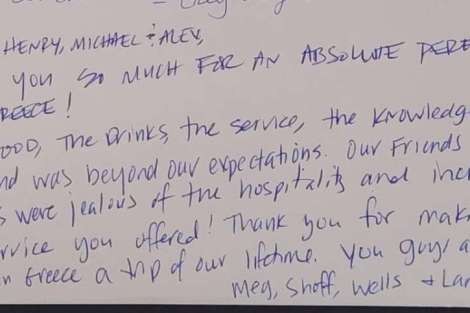 HENRY, MICHAEL & ALEX,
YOU SO MUCH FOR AN ABSOLUTE
REECE!
OOD, The Drinks, the service, the knowledg
nd was beyond our expectations. Our Friends
s were jealous of the hospitality and inc
rvice you offered! Thank you for mak
n Greece a trip of our lifetime. You guys a
Meg, Shoff, Wells + Lar